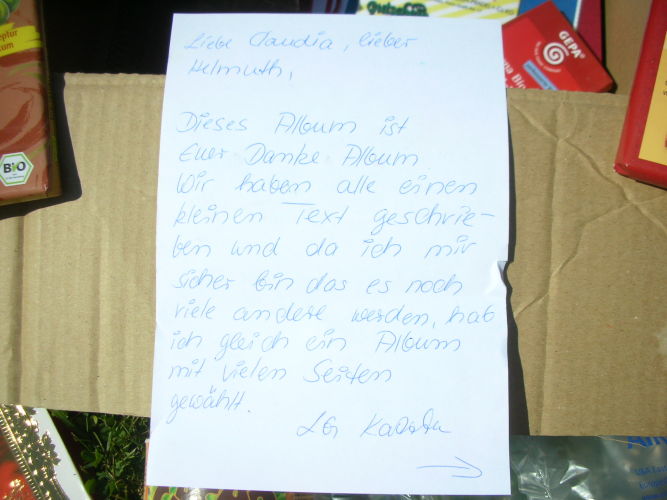 Liebe Claudia, lieber
Helmuth,
Dieses Album ist
Euer Danke Album
Wir haben alle einen
kleinen Text geschrie-
ben und da ich mir
sicher bin das es noch
viele andere werden, hab
ich gleich ein Album
mit vielen Seiten
gewählt.
LG
GEPA
BIO